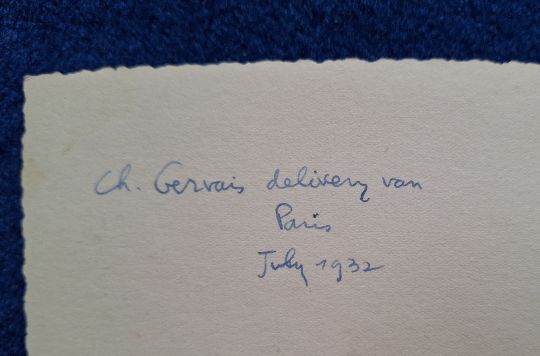 Ch. Gervais delivery van
Paris
July 1932